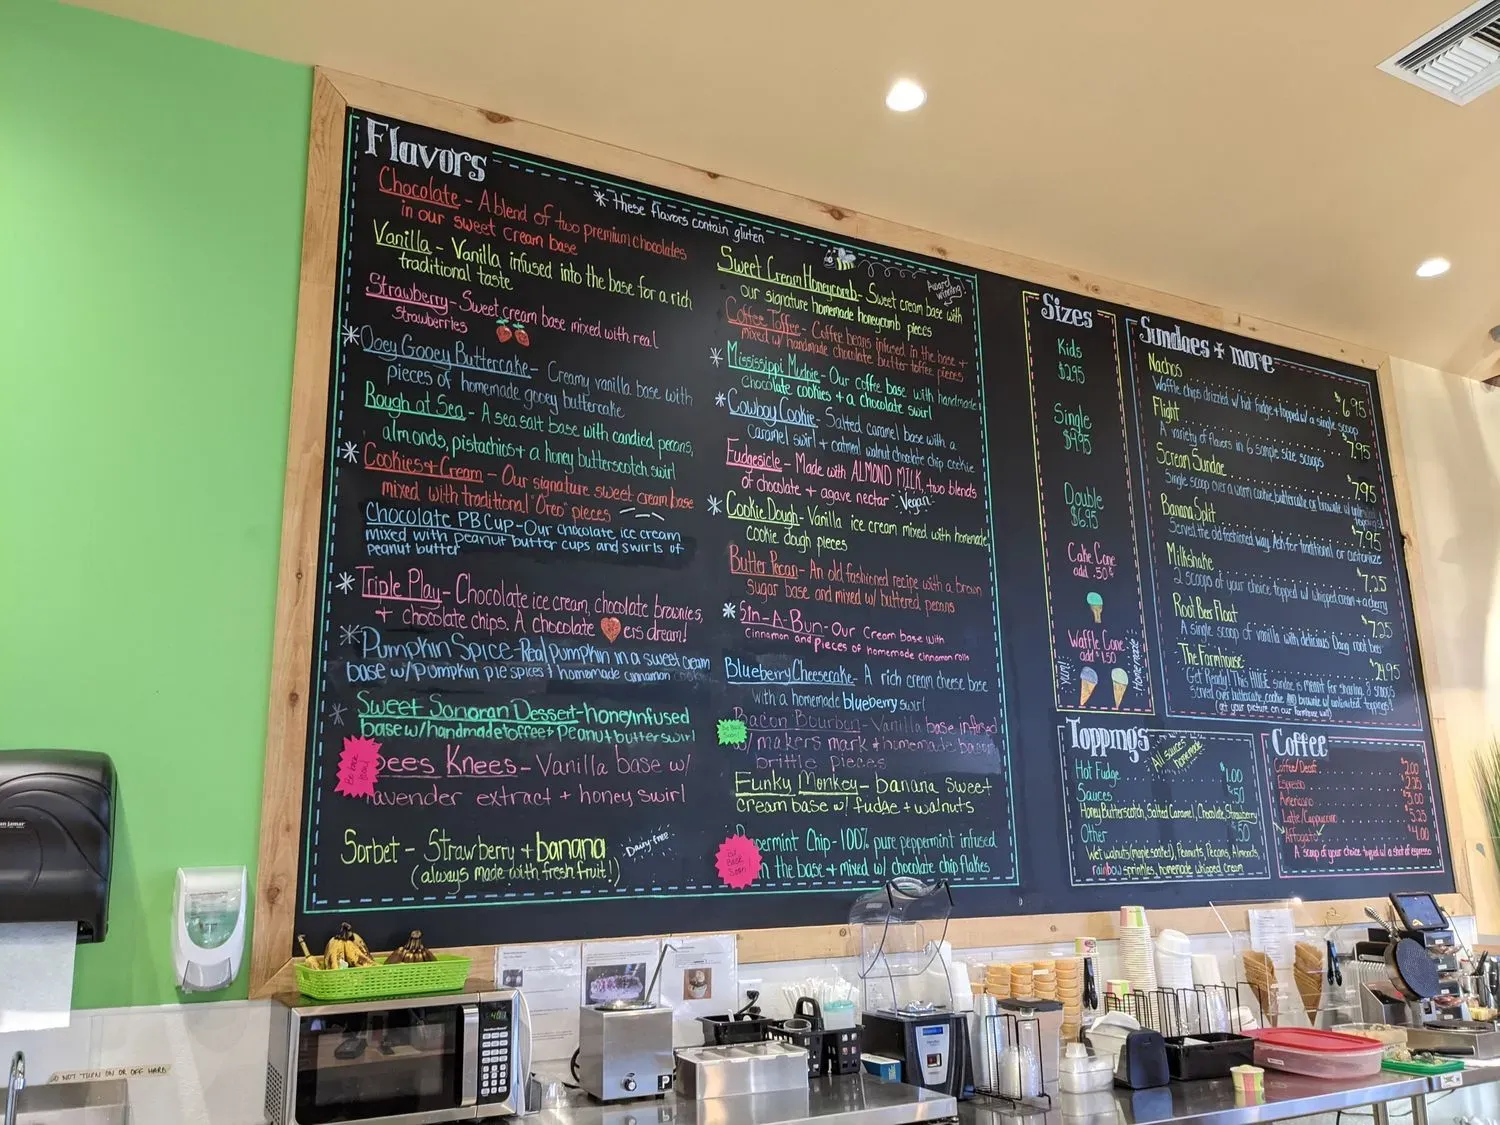 Flavors
* these flavors contain gluten
Chocolate - A blend of two premium chocolates
in our sweet cream base
Vanilla - Vanilla infused into the base for a rich
traditional taste
Strawberry - Sweet cream base mixed with real
strawberries
* Ooey Gooey Buttercake - Creamy vanilla base with
pieces of homemade gooey buttercake
Rough at Sea - A sea salt base with candied pecans,
almonds, pistachios + a honey butterscotch swirl
* Cookies + Cream - Our signature sweet cream base
mixed with traditional "Oreo" pieces
Chocolate PB Cup - Our chocolate ice cream
mixed with peanut butter cups and swirls of
peanut butter
* Triple Play - Chocolate ice cream, chocolate brownies,
+ chocolate chips. A chocolate ers dream!
* Pumpkin Spice - Real pumpkin in a sweet cream
base w/ pumpkin pie spices + homemade cinnamon cookies
* Sweet Sonoran Dessert - honey infused
base w/ handmade toffee + peanut butter swirl
Be Back Soon!
Bees Knees - Vanilla base w/
lavender extract + honey swirl
Sorbet - Strawberry + banana
Dairy-free
(always made with fresh fruit!)
Sweet Cream Honeycomb - Sweet cream base with
Award winning
our signature homemade honeycomb pieces
Coffee Toffee - Coffee beans infused in the base +
mixed w/ handmade chocolate butter toffee pieces
* Mississippi Mudpie - Our coffee base with handmade
chocolate cookies + a chocolate swirl
* Cowboy Cookie - Salted caramel base with a
caramel swirl + oatmeal walnut chocolate chip cookie
Fudgesicle - Made with ALMOND MILK, two blends
of chocolate + agave nectar "Vegan"
* Cookie Dough - Vanilla ice cream mixed with homemade
cookie dough pieces
Butter Pecan - An old fashioned recipe with a brown
sugar base and mixed w/ buttered pecans
* Sin-A-Bun - Our Cream base with
cinnamon and pieces of homemade cinnamon rolls
Blueberry Cheesecake - A rich cream cheese base
with a homemade blueberry swirl
Bacon Bourbon - Vanilla base infused
w/ makers mark + homemade bacon
brittle pieces
Funky Monkey - banana sweet
cream base w/ fudge + walnuts
Be Back Soon!
Peppermint Chip - 100% pure peppermint infused
in the base + mixed w/ chocolate chip flakes
Sizes
Kids
$2.95
Single
Double
$6.95
Cake Cone
add .50¢
Waffle Cone
add $1.50
Yum!
Homemade
Sundaes + more
Nachos $6.95
Waffle chips drizzled w/ hot fudge + topped w/ a single scoop
Flight $7.95
A variety of flavors in 6 sample size scoops
Scream Sundae $7.95
Single scoop over a warm cookie, buttercake or brownie w/ unlimited toppings!
Banana Split $7.95
Served the old fashioned way. Ask for traditional or customize
Milkshake $7.25
2 scoops of your choice topped w/ whipped cream + a cherry
Root Beer Float $7.25
A single scoop of vanilla with delicious Dang root beer
The Farmhouse $24.95
Get Ready! This HUGE sundae is meant for sharing. 8 scoops
served over buttercake, cookie AND brownie w/ unlimited toppings!
(get your picture on our farmhouse wall)
Toppings
All sauces homemade
Hot Fudge $1.00
Sauces $.50
Honey Butterscotch, Salted Caramel, Chocolate, Strawberry
Other $.50
Wet walnuts (maple soaked), Peanuts, Pecans, Almonds,
rainbow sprinkles, homemade whipped cream
Coffee
Coffee/Decaf $2.00
Espresso $2.25
Americano $3.00
Latte/Cappuccino $3.25
Affogato $4.00
A scoop of your choice topped w/ a shot of espresso
DO NOT TURN ON OR OFF HARD